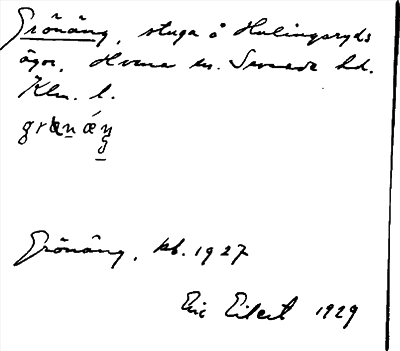 Grönäng, stuga å Hulingsryds
ägor, Hvena sn. Sevede hd.
Klm. l.
grœnǽŋ
Grönäng, kb. 1927
Eric Eilert 1929